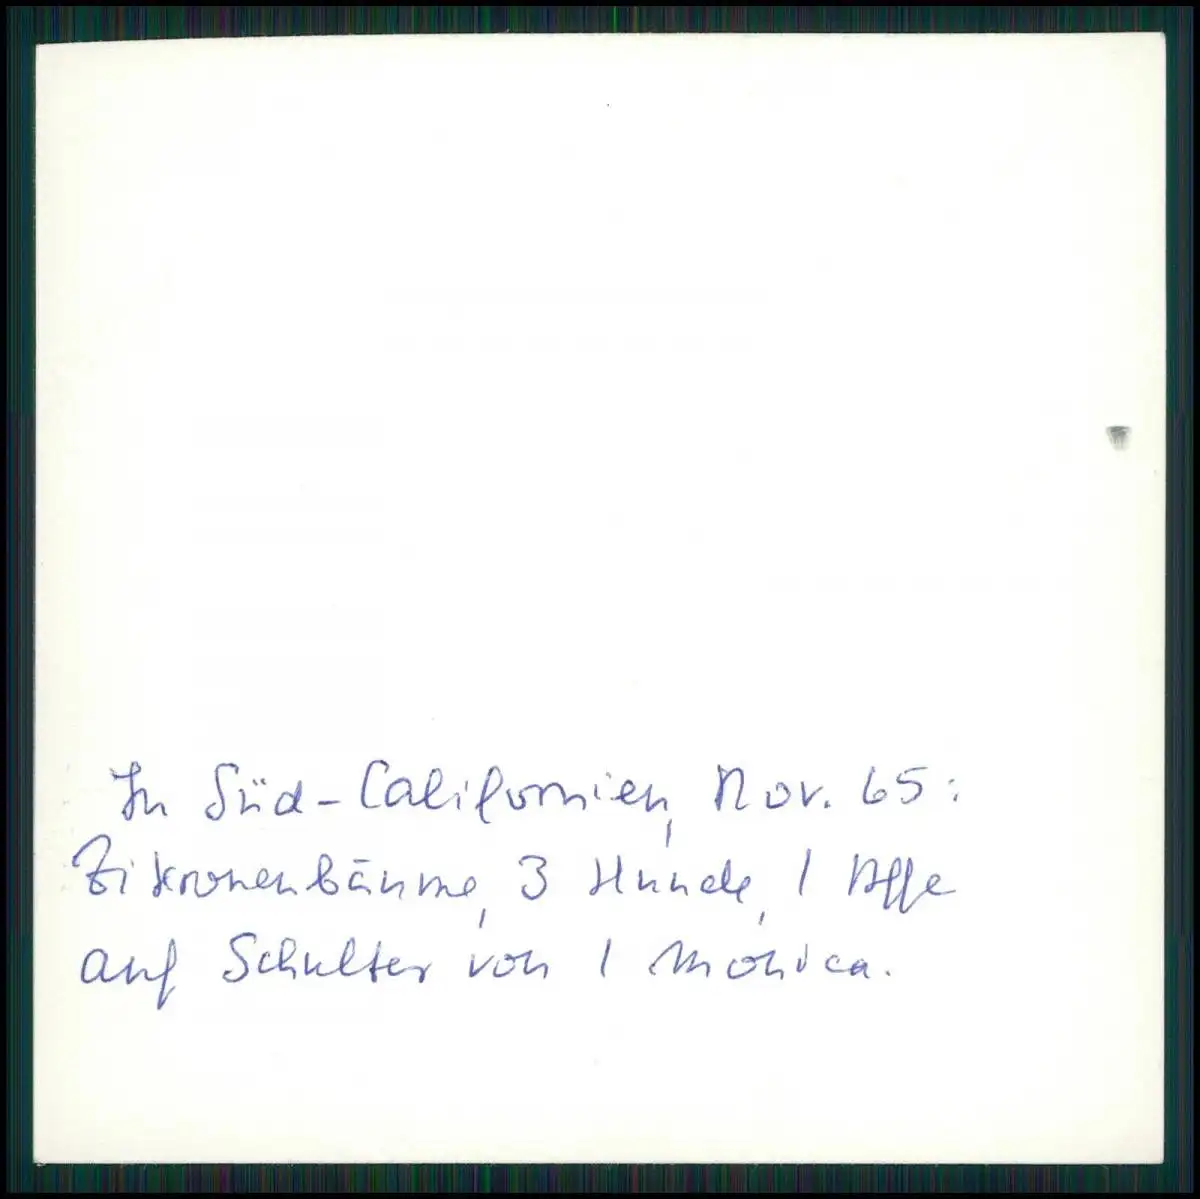 In Süd-Californien, Nov. 65:
Zitronenbäume, 3 Hunde, 1 Affe
auf Schulter von 1 Monica.